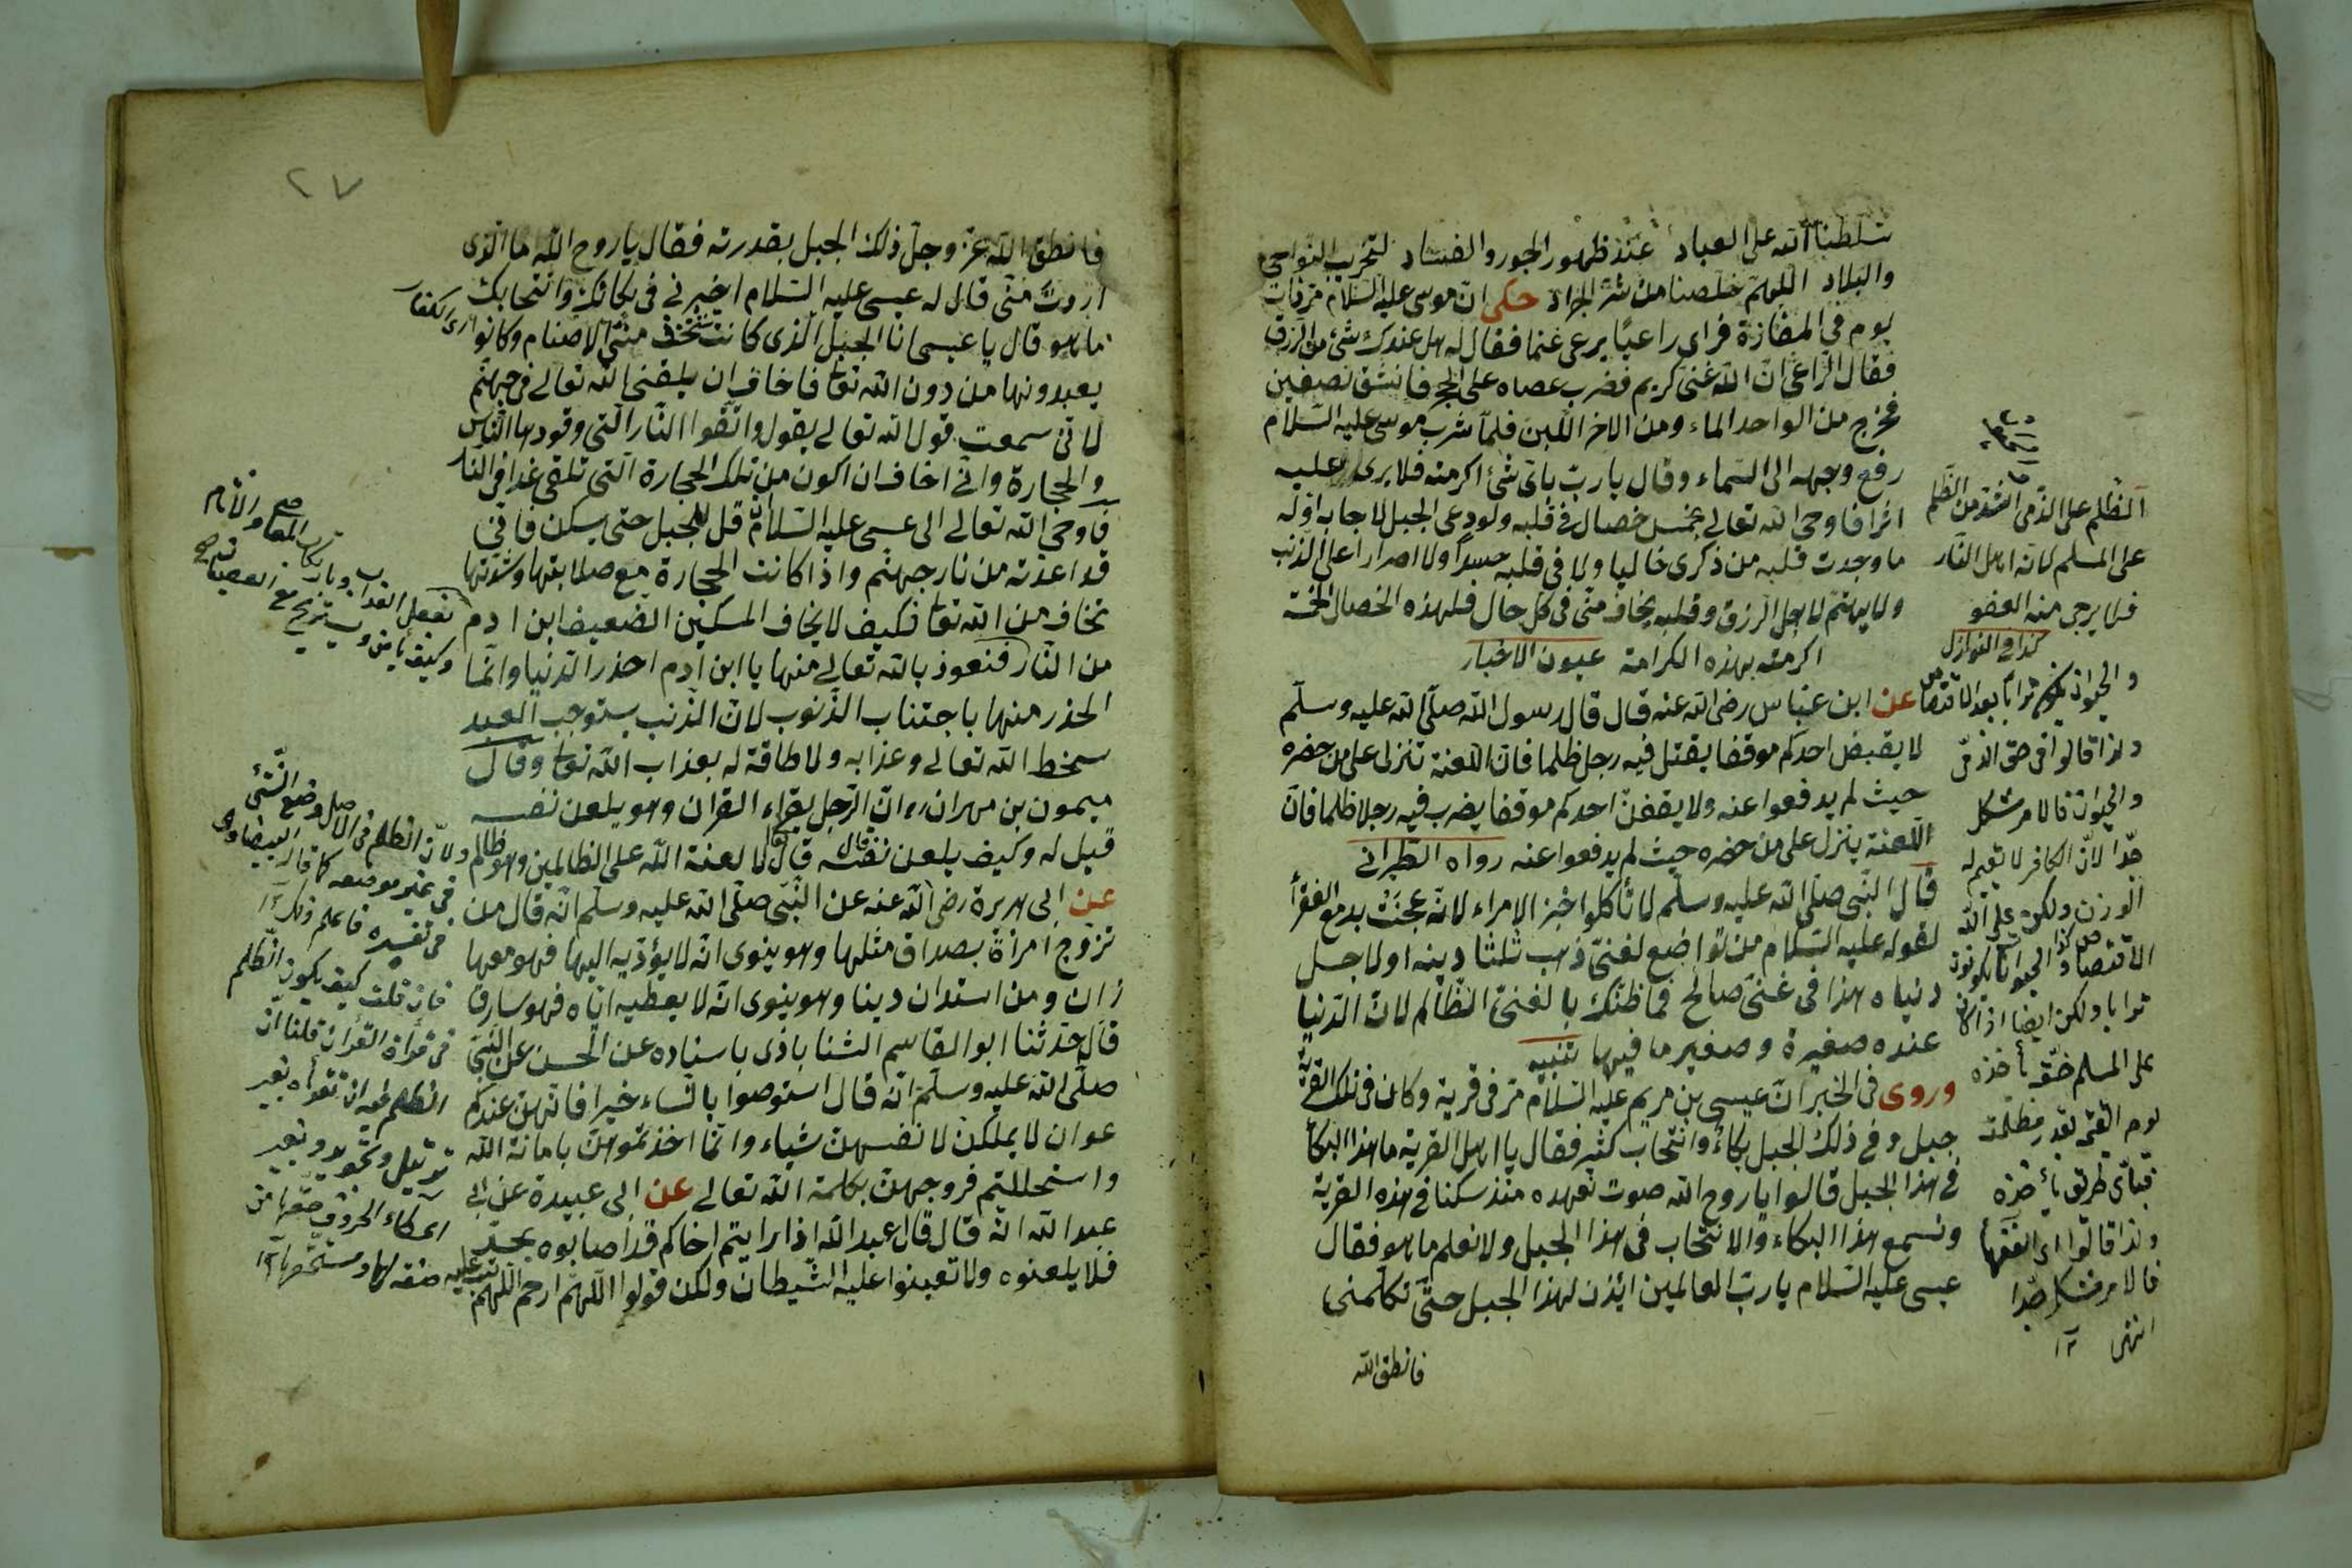 سلطنا الله على العباد عند ظهور الجور والفساد لتخريب النواحى
والبلاد اللهم خلصنا من شر الجزاء حكى ان موسى عليه السلام مر ذات
يوم فى المفازة فراى راعيا يرعى غنما فقال له هل عندك شئ من الرزق
فقال الراعى ان الله غنى كريم فضرب عصاه على الحجر فانشق نصفين
فخرج من الواحد الماء ومن الاخر اللبن فلما شرب موسى عليه السلام
رفع وجهه الى السماء وقال يا رب باى شئ اكرمته فلا يرى عليه
اثرا فاوحى الله تعالى بخمس خصال فى قلبه ولو دعى الجبل لاجابه اوله
ما وجدت قلبه من ذكرى خاليا ولا فى قلبه حسدا ولا اصرارا على الذنب
ولا يهتم لاجل الرزق وقلبه يخاف منى فى كل حال فلهذه الخصال الخمسة
اكرمته بهذه الكرامة عيون الاخبار
عن ابن عباس رضى الله عنه قال قال رسول الله صلى الله عليه وسلم
لا يقبض احدكم موقفا يقتل فيه رجل ظلما فان اللعنة تنزل على من حضره
حيث لم يدفعوا عنه ولا يقفن احدكم موقفا يضرب فيه رجلا ظلما فان
اللعنة ينزل على من حضره حيث لم يدفعوا عنه رواه الطبرانى
قال النبى صلى الله عليه وسلم لا تأكلوا خبز الامراء لانه عجنت بدمع الفقرأ
لقوله عليه السلام من تواضع لغنى ذهب ثلثا دينه اولاجل
دنياه هذا فى غنى صالح فما ظنك بالغنى الظالم لان الدنيا
عنده صغيرة وصغير ما فيها تنبيه
وروى فى الخبر ان عيسى بن مريم عليه السلام مر فى قرية وكان فى تلك القرية
جبل وفى ذلك الجبل بكاء وانتحاب كثير فقال يا اهل القرية ما هذا البكأ
فى هذا الجبل قالوا يا روح الله صوت نعهده منذ سكنا فى هذه القرية
ونسمع هذا البكاء والانتحاب فى هذا الجبل ولا نعلم ما هو فقال
عيسى عليه السلام يا رب العالمين ائذن لهذا الجبل حتى تكلمنى
فانطق الله
الظلم على الذمى اشد من الظلم
على المسلم لانه اهل النار
فلا يرجى منه العفو
كذا فى النوازل
والحيوان يكون ترابا بعد الاقتصاص
ولذا قالوا فى حق الذمى
والحيوان فالامر مشكل
جدا لان الكافر لا نقيم له
الوزن ولكن على الله
الاقتصاص كذا الحيوانات يكونون
ترابا ولكن ايضا
على المسلم حقه يأخذه
يوم القيمة بقدر مظلمته
فبأى طريق يأخذه
ولذا قالوا اى الفقهاء
فالامر مشكل جدا
انتهى ١٢
٢٧
فانطق الله عز وجل ذلك الجبل بقدرته فقال يا روح الله ما الذى
اردت منى قال له عيسى عليه السلام اخبرنى فى بكائك وانتحابك
ما هو قال يا عيسى انا الجبل الذى كانت تنخذ منى الاصنام وكانوا اى الكفار
يعبدونها من دون الله تعا فاخاف ان يلقنى الله تعالى فى جهنم
لانى سمعت قول الله تعالى يقول واتقوا النار التى وقودها الناس
والحجارة وانى اخاف ان اكون من تلك الحجارة التى تلقى غدا فى النار
فاوحى الله تعالى الى عيسى عليه السلام قل للجبل حتى يسكن فانى
قد اعذته من نار جهنم واذا كانت الحجارة مع صلابتها وشدتها
تخاف من الله تعا فكيف لا يخاف المسكين الضعيف ابن ادم
من النار فنعوذ بالله تعالى منها يا ابن ادم احذر الدنيا وانما
الحذر منها باجتناب الذنوب لان الذنب يستوجب العبد
سخط الله تعالى وعذابه ولا طاقة له بعذاب الله تعا وقال
ميمون بن مهران ره ان الرجل يقراء القران وهو يلعن نفسه
قيل له وكيف يلعن نفسه قال الا لعنة الله على الظالمين وهو ظالم
عن ابى هريرة رضى الله عنه عن النبى صلى الله عليه وسلم انه قال من
تزوج امرأة بصداق مثلها وهو ينوى انه لا يؤديه اليها فهو معها
زان ومن استدان دينا وهو ينوى انه لا يعطيه اياه فهو سارق
قال حدثنا ابو القاسم الشناباذى باسناده عن الحسن عن النبى
صلى الله عليه وسلم انه قال استوصوا بالنساء خيرا فانهن عندكم
عوان لا يملكن لانفسهن شياء وانما اخذتموهن بامانة الله
واستحللتم فروجهن بكلمة الله تعالى عن ابى عبيدة عن ابى
عبد الله انه قال قال عبد الله اذا رايتم اخاكم قد اصابوه بحد
فلا يلعنوه ولا تعينوا عليه الشيطان ولكن قولوا اللهم ارحم اللهم تب عليه
ولان الظلم فى الاصل وضع الشئ
فى غير موضعه كما قال البيضاوى
فى تفسيره فاعلم ذلك ١٢
فان قلت كيف يكون الظلم
فى قرأة القرأن قلنا ان
الظلم فيه ان تقرأه بغير
ترتيل وتجويد وبغير
اعطاء الحروف حقها من
صفة لها ومستحقها ١٢